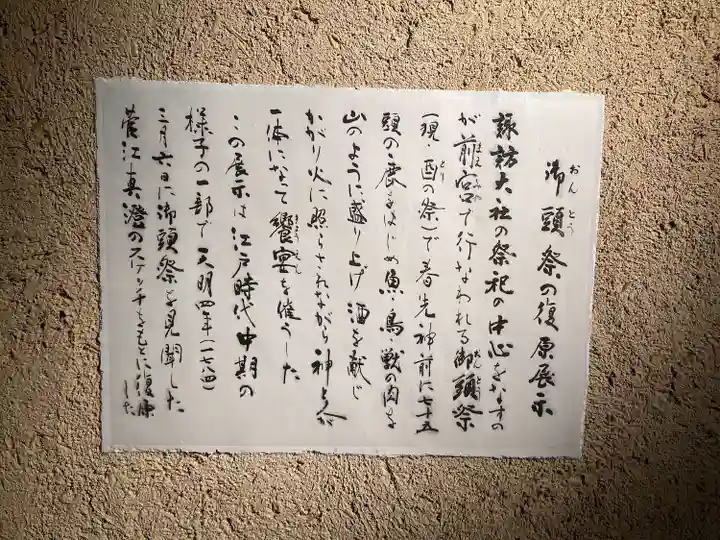 御頭祭の復原展示
諏訪大社の祭祀の中心をなすの
が前宮で行なわれる御頭祭
(現・酉の祭)で春先神前に七十五
頭の鹿をはじめ魚・鳥・獣の肉を
山のように盛り上げ酒を献じ
かがり火に照らされながら神と人が
一体になって饗宴を催うした
この展示は江戸時代中期の
様子の一部で天明四年(一七八四)
三月六日に御頭祭を見聞した
菅江真澄のスケッチをもとに復原した